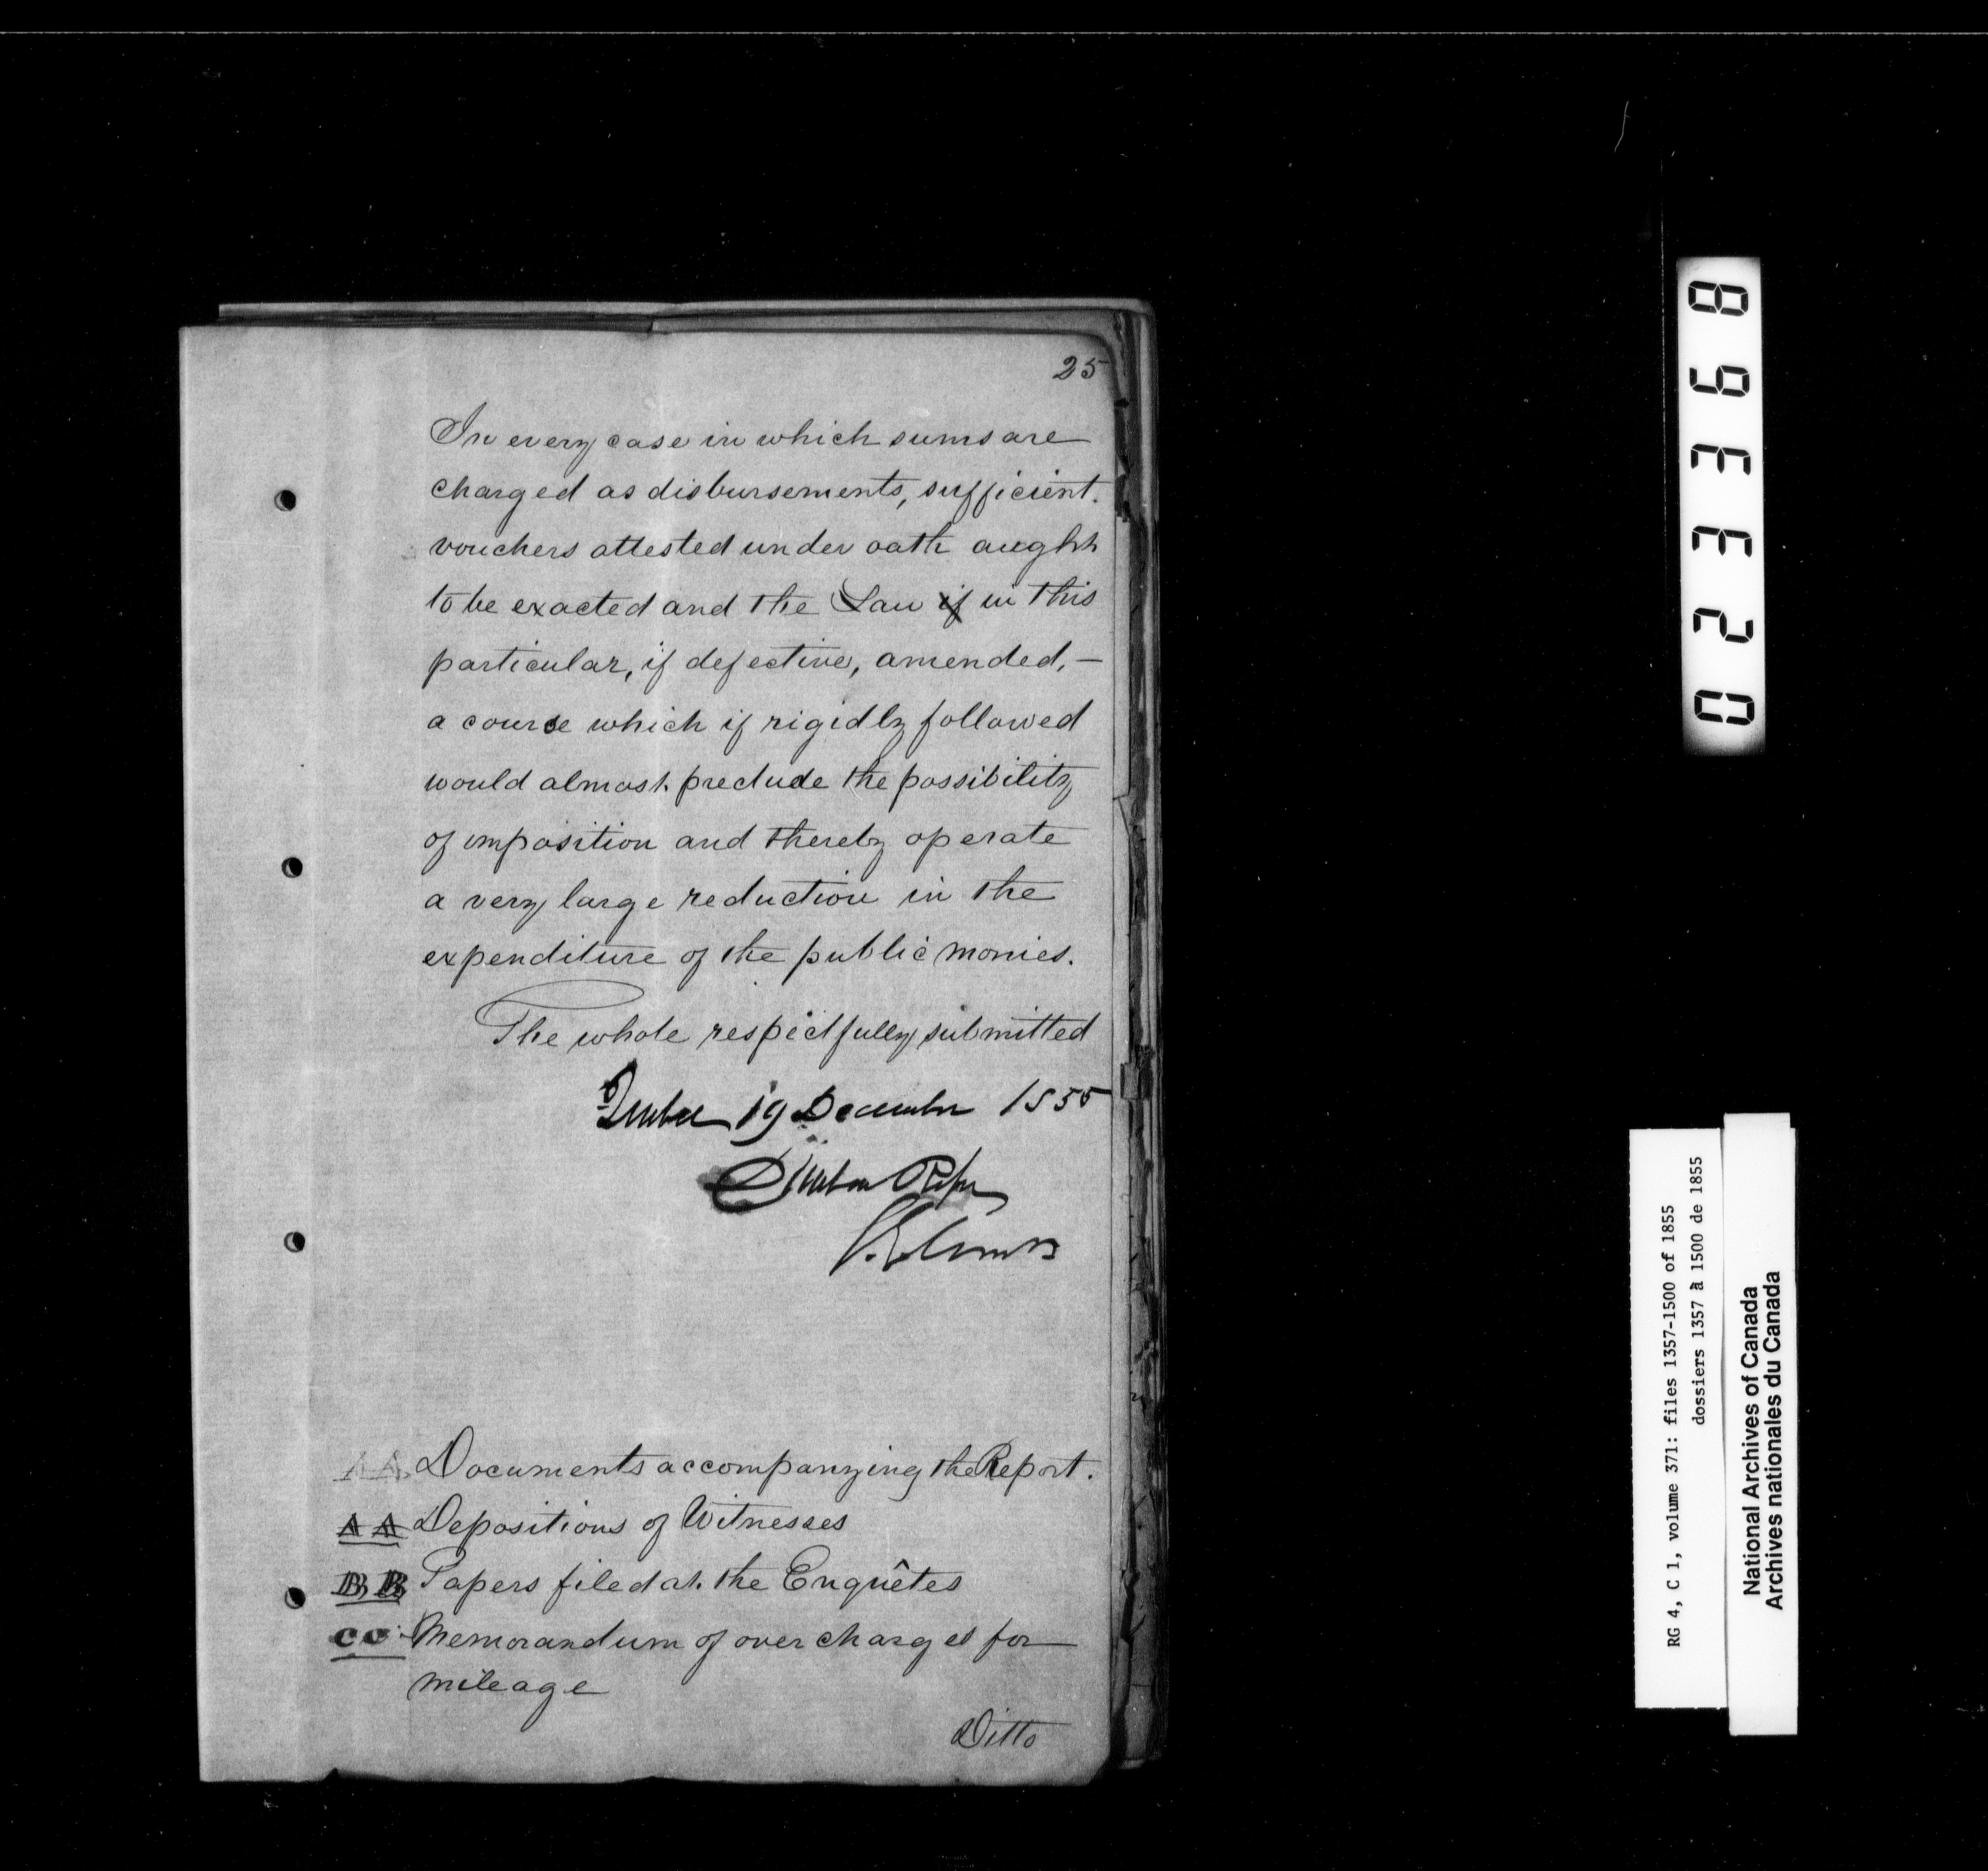 25
In every case in which sums are
charged as disbursements, sufficient
vouchers attested under oath aught
to be exacted and the Law if in this
particular, if defective, amended, —
a course which if rigidly followed
would almost preclude the possibility
of imposition and thereby operate
a very large reduction in the
expenditure of the public monies.
The whole respectfully submitted
Quebec 19 December 1855
AA. Documents accompanying the Report.
AA Depositions of Witnesses
BB Papers filed at the Enquêtes
CC Memorandum of over charges for
mileage
Ditto
023368
RG 4, C 1, volume 371: files 1357-1500 of 1855
dossiers 1357 à 1500 de 1855
National Archives of Canada
Archives nationales du Canada